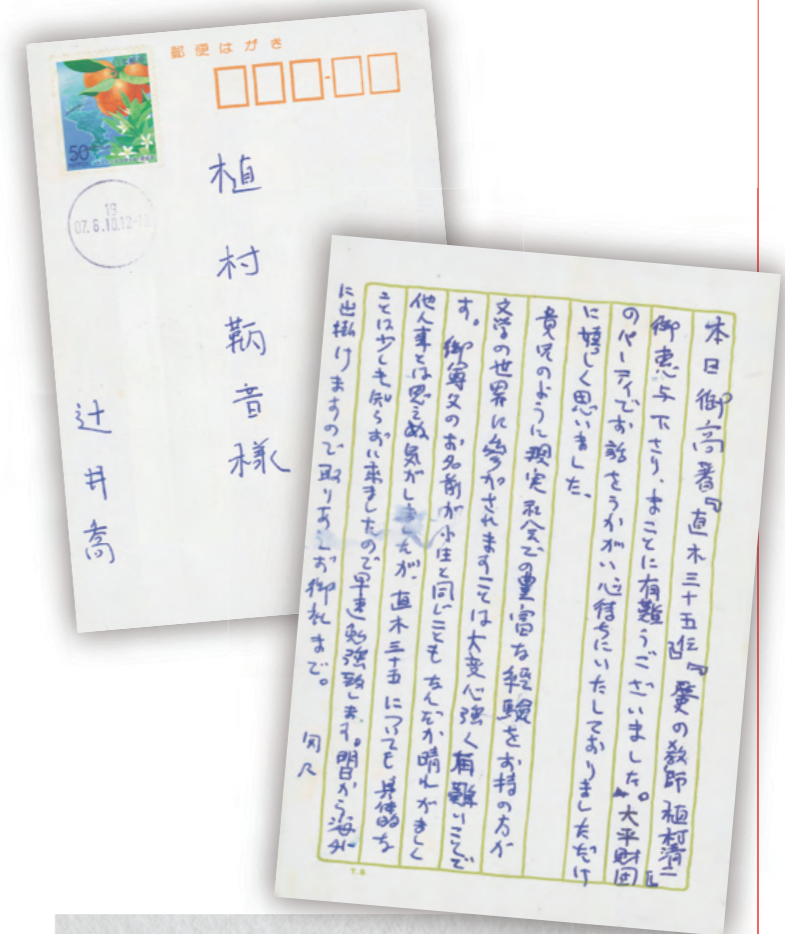 郵便はがき
50
19
07.6.10.12-18
植村鞆音様
辻井喬
本日御高著『直木三十五伝』『歴史の教師 植村清二』
御恵与下さり、まことに有難うございました。大平財団
のパーティでお話をうかがい心待ちにいたしておりましただけ
に嬉しく思いました。
貴兄のように現実社会での豊富な経験をお持の方が
文学の世界に参加されますことは大変心強く有難いことで
す。御尊父のお名前が小生と同じこともなんだか晴れがましく
他人事とは思えぬ気がしましたが、直木三十五についても具体的な
ことは少しも知らずに来ましたので早速勉強致します。明日から海外
に出掛けますので取りあえず御礼まで。